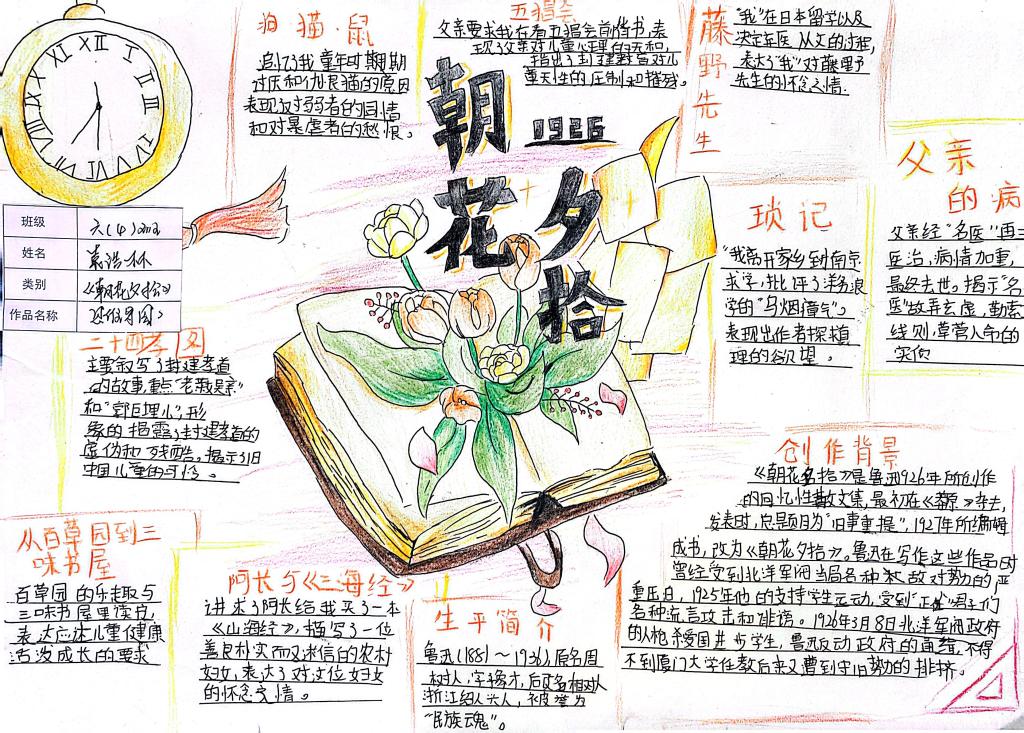 狗·猫·鼠
追忆了我童年时期期
讨厌和仇恨猫的原因
表现对弱者的同情
和对暴虐者的愁恨。
五猖会
父亲要求我在看五猖会前背书,表
现了父亲对儿童心理的无和,
指出了封建教育对儿
童天性的压制和摧残。
藤野先生
"我"在日本留学以及
决定弃医从文的过程,
表达了"我"对藤野
先生的怀念之情.
朝花夕拾
1926
父亲
的病
父亲经"名医"再三
医治,病情加重,
最终去世。揭示"名
医"故弄玄虚,勒索
钱财,草菅人命的
实质
琐记
"我离开家乡到南京
求学,批评了洋务派
学的"乌烟瘴气".
表现出作者探植
理的欲望.
班级 六(4)班
姓名 袁浩林
类别 《朝花夕拾》
作品名称 思维导图
二十四孝图
主要叙写了封建孝道
的故事,重点"老莱娱亲"
和"郭巨埋儿",形
象的揭露了封建孝道的
虚伪和残酷。揭示了旧
中国儿童的可怜。
创作背景
《朝花夕拾》是鲁迅926年所创作
的回忆性散文集,最初在《莽原》杂志
发表时,总题目为"旧事重提".1927年所编
成书,改为《朝花夕拾》。鲁迅在写作这些作品时
曾经受到北洋军阀当局各种敌对势力的严
重压迫,1925年他的支持学生运动,受到"正"君子们
各种流言攻击和诽谤。1926年3月8日北洋军阀政府
的枪杀爱国进步学生,鲁迅反动政府的通缉,不得
不到厦门大学任教后来又遭到守旧势力的排挤.
从百草园到三
味书屋
百草园的乐趣与
三味书屋里读书,
表达应该儿童健康
活泼成长的要求
阿长与《三海经》
讲求了阿长给我买了一本
《山海经》,描写了一位
善良朴实而又迷信的农村
妇女,表达了对这位妇女
的怀念之情。
生平简介
鲁迅(1881~1936),原名周
树人,字豫才,后改名
浙江绍兴人,被誉为
"民族魂"。